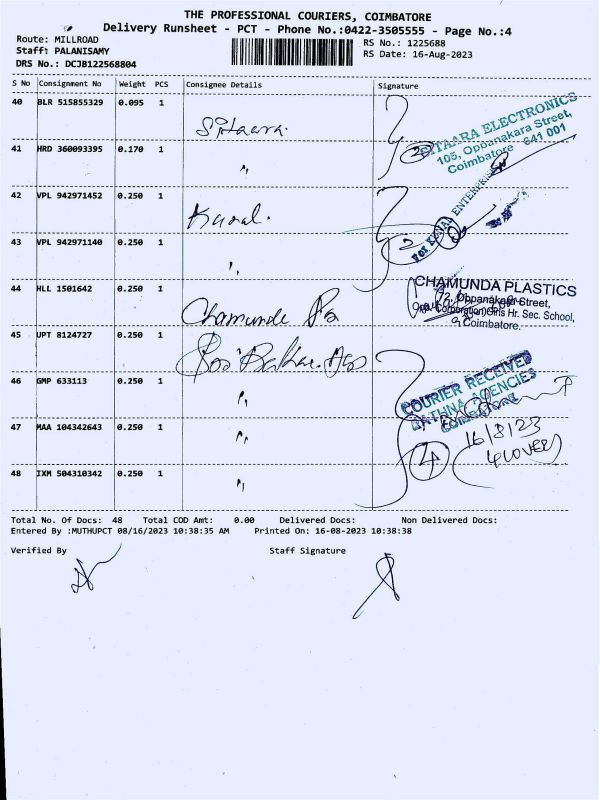 THE PROFESSIONAL COURIERS, COIMBATORE
Delivery Runsheet - PCT - Phone No.:0422-3505555 - Page No.:4
Route: MILLROAD
RS No.: 1225688
Staff: PALANISAMY
RS Date: 16-Aug-2023
DRS No.: DCJB122568804
S No Consignment No Weight PCS Consignee Details Signature
40 BLR 515855329 0.095 1 Sitaara.
SITAARA ELECTRONICS
105, Oppanakara Street,
Coimbatore - 641 001
2
41 HRD 360093395 0.170 1 "
42 VPL 942971452 0.250 1 Kunal.
For KUNAL ENTERPRISES
2
43 VPL 942971140 0.250 1 "
44 HLL 1501642 0.250 1 Chamunda Pla
CHAMUNDA PLASTICS
Oppanakara Street,
Opp. Corporation Girls Hr. Sec. School,
Coimbatore.
45 UPT 8124727 0.250 1
COURIER RECEIVED
RATHNA AGENCIES
COIMBATORE
46 GMP 633113 0.250 1 "
47 MAA 104342643 0.250 1 "
16/8/23
4 COVER
4
48 IXM 504310342 0.250 1 "
Total No. Of Docs: 48 Total COD Amt: 0.00 Delivered Docs: Non Delivered Docs:
Entered By :MUTHUPCT 08/16/2023 10:38:35 AM Printed On: 16-08-2023 10:38:38
Verified By Staff Signature